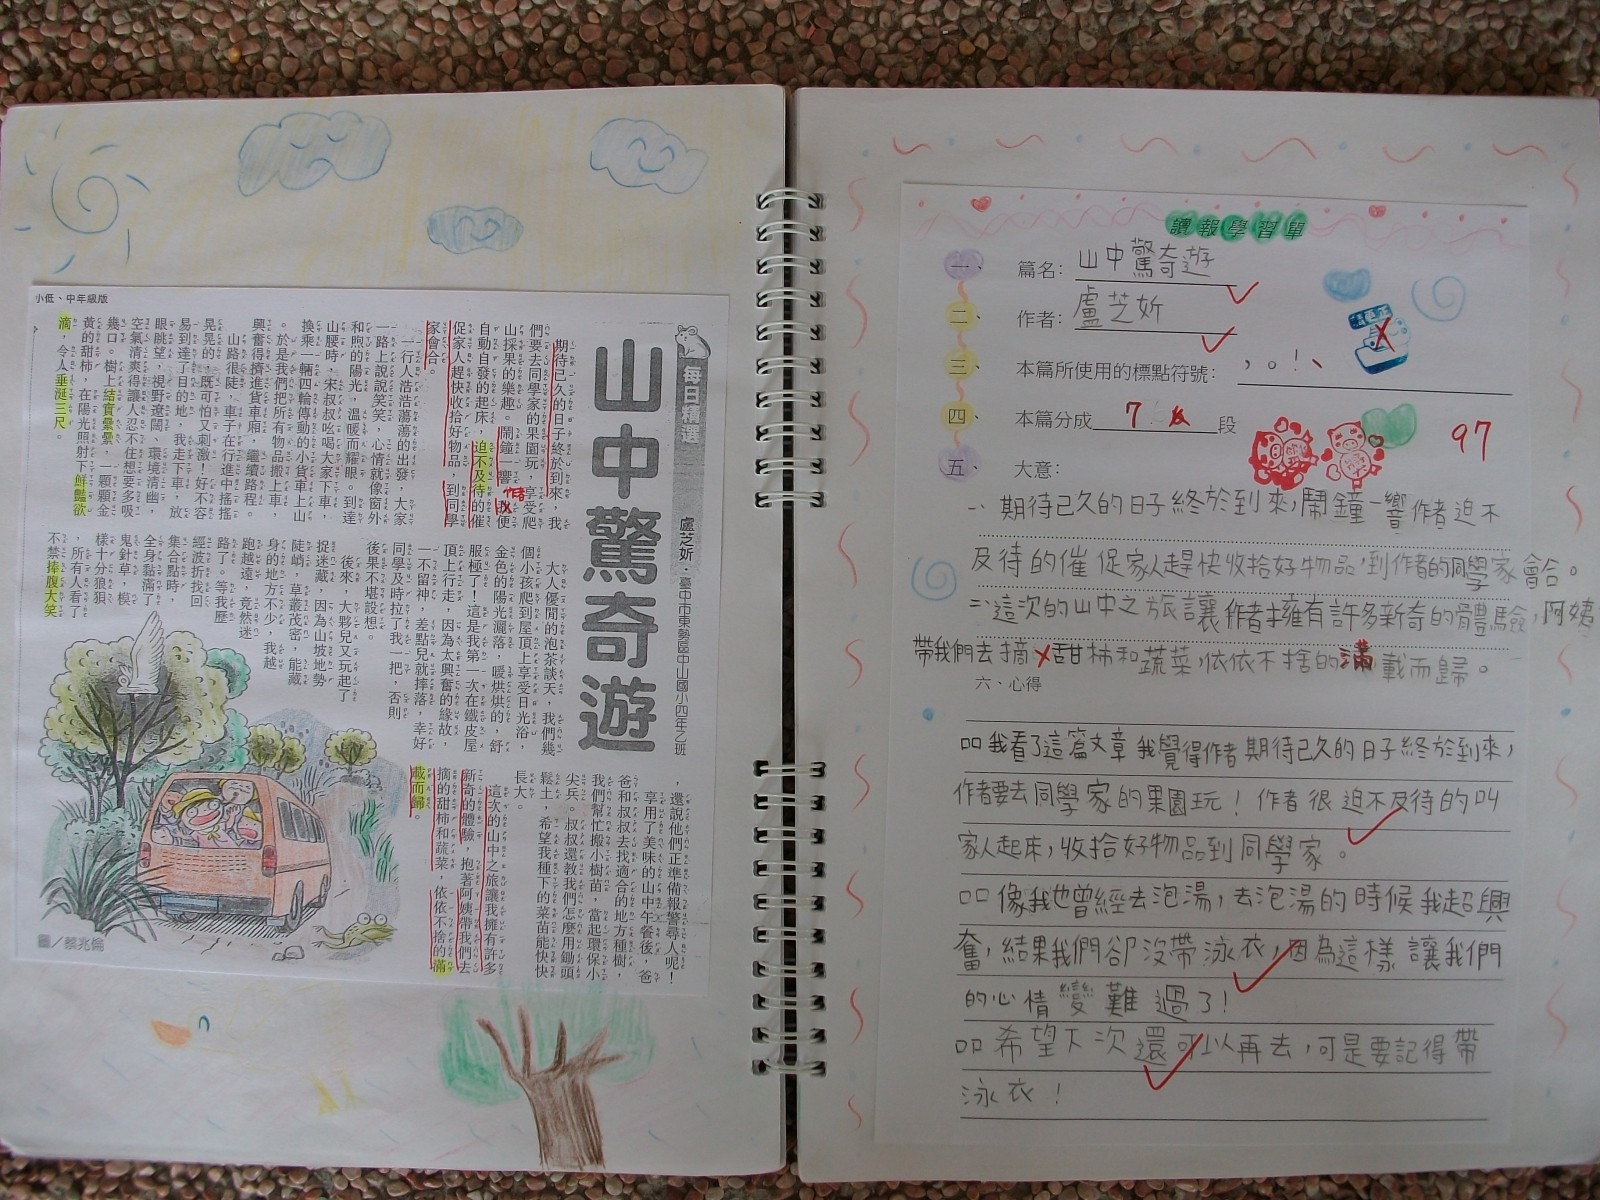 小低、中年級版
每日精選
山中驚奇遊
盧芝妡．臺中市東勢區中山國小四年乙班
期待已久的日子終於到來，我
們要去同學家的果園玩，享受爬
山採果的樂趣。鬧鐘一響，我便
作者
自動自發的起床，迫不及待的催
促家人趕快收拾好物品，到同學
家會合。
一行人浩浩蕩蕩的出發，大家
一路上說說笑笑，心情就像窗外
和煦的陽光，溫暖而耀眼。到達
山腰時，宋叔叔吆喝大家下車，
換乘一輛四輪傳動的小貨車上山
。於是我們把所有物品搬上車，
興奮得擠進貨車廂，繼續路程。
山路很陡，車子在行進中搖搖
晃晃的，既可怕又刺激！好不容
易到達了目的地，我走下車，放
眼眺望，視野遼闊、環境清幽，
空氣清爽得讓人忍不住想要多吸
幾口。樹上結實纍纍，一顆顆金
黃的甜柿，在陽光照射下鮮豔欲
滴，令人垂涎三尺。
大人優閒的泡茶談天，我們幾
個小孩爬到屋頂上享受日光浴，
金色的陽光灑落，暖烘烘的，舒
服極了！這是我第一次在鐵皮屋
頂上行走，因為太興奮的緣故，
一不留神，差點兒就摔落，幸好
同學及時拉了我一把，否則
後果不堪設想。
後來，大夥兒又玩起了
捉迷藏，因為山坡地勢
陡峭，草叢茂密，能藏
身的地方不少，我越
跑越遠，竟然迷
路了。等我歷
經波折找回
集合點時，
全身黏滿了
鬼針草，模
樣十分狼狽
，所有人看了
不禁捧腹大笑
，還說他們正準備報警尋人呢！
享用了美味的山中午餐後，爸
爸和叔叔去找適合的地方種樹，
我們幫忙搬小樹苗，當起環保小
尖兵。叔叔還教我們怎麼用鋤頭
鬆土，希望我種下的菜苗能快快
長大。
這次的山中之旅讓我擁有許多
新奇的體驗，抱著阿姨帶我們去
摘的甜柿和蔬菜，依依不捨的滿
載而歸。
圖／蔡兆倫
讀報學習單
一、 篇名：山中驚奇遊
二、 作者：盧芝妡
三、 本篇所使用的標點符號：，。！、
四、 本篇分成 7 段
97
五、 大意：
一、期待已久的日子終於到來，鬧鐘一響作者迫不
及待的催促家人趕快收拾好物品，到作者的同學家會合。
二、這次的山中之旅讓作者擁有許多新奇的體驗，阿姨
帶我們去摘甜柿和蔬菜，依依不捨的滿載而歸。
六、心得
口口我看了這篇文章我覺得作者期待已久的日子終於到來，
作者要去同學家的果園玩！作者很迫不及待的叫
家人起床，收拾好物品到同學家。
口口像我也曾經去泡湯，去泡湯的時候我超興
奮，結果我們卻沒帶泳衣，因為這樣讓我們
的心情變難過了！
口口希望下次還可以再去，可是要記得帶
泳衣！